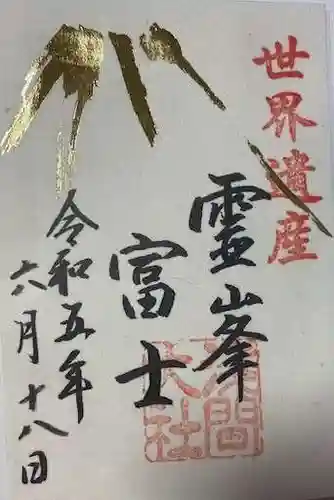 世界遺産
霊峯
富士
令和五年
六月十八日
浅間
大社